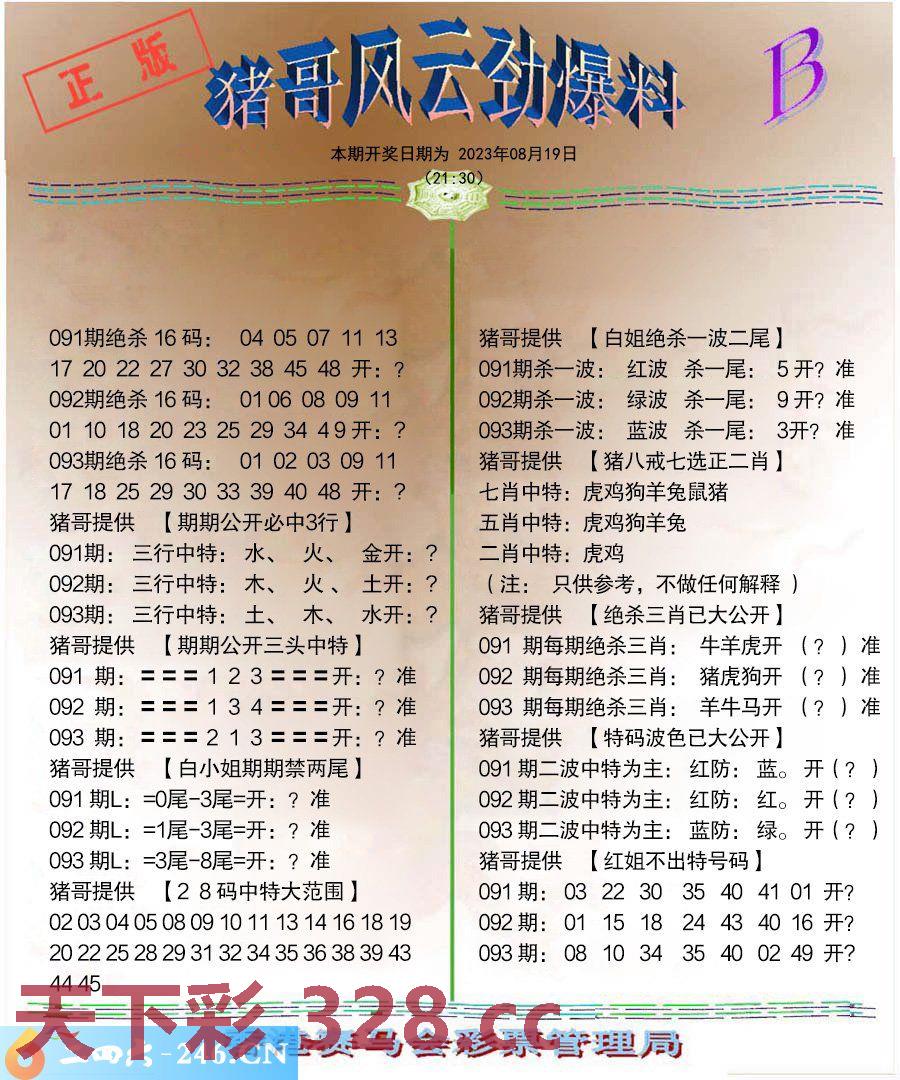 正版
猪哥风云劲爆料
B
本期开奖日期为 2023年08月19日
(21:30)
091期绝杀16码： 04 05 07 11 13
17 20 22 27 30 32 38 45 48 开：?
092期绝杀16码： 01 06 08 09 11
01 10 18 20 23 25 29 34 4 9 开：?
093期绝杀16码： 01 02 03 09 11
17 18 25 29 30 33 39 40 48 开：?
猪哥提供 【期期公开必中3行】
091期：三行中特：水、 火、 金开：?
092期：三行中特：木、 火、土开：?
093期：三行中特：土、 木、 水开：?
猪哥提供 【期期公开三头中特】
091 期：=== 1 2 3 ===开：? 准
092 期：=== 1 3 4 ===开：? 准
093 期：=== 2 1 3 ===开：? 准
猪哥提供 【白小姐期期禁两尾】
091期L：=0尾-3尾=开：? 准
092期L：=1尾-3尾=开：? 准
093期L：=3尾-8尾=开：? 准
猪哥提供 【２８码中特大范围】
02 03 04 05 08 09 10 11 13 14 16 18 19
20 22 25 28 29 31 32 34 35 36 38 39 43
44 45
猪哥提供 【白姐绝杀一波二尾】
091期杀一波： 红波 杀一尾： 5开? 准
092期杀一波： 绿波 杀一尾： 9开? 准
093期杀一波： 蓝波 杀一尾： 3开? 准
猪哥提供 【猪八戒七选正二肖】
七肖中特：虎鸡狗羊兔鼠猪
五肖中特：虎鸡狗羊兔
二肖中特：虎鸡
（注： 只供参考，不做任何解释 ）
猪哥提供 【绝杀三肖已大公开】
091 期每期绝杀三肖： 牛羊虎开 （? ）准
092 期每期绝杀三肖： 猪虎狗开 （? ）准
093 期每期绝杀三肖： 羊牛马开 （? ）准
猪哥提供 【特码波色已大公开】
091期二波中特为主：红防：蓝。开(? )
092期二波中特为主：红防：红。开(? )
093期二波中特为主：蓝防：绿。开(? )
猪哥提供 【红姐不出特号码】
091期： 03 22 30 35 40 41 01 开?
092期： 01 15 18 24 43 40 16 开?
093期： 08 10 34 35 40 02 49 开?
天下彩 328.cc
-246.CN
赛马会彩票管理局